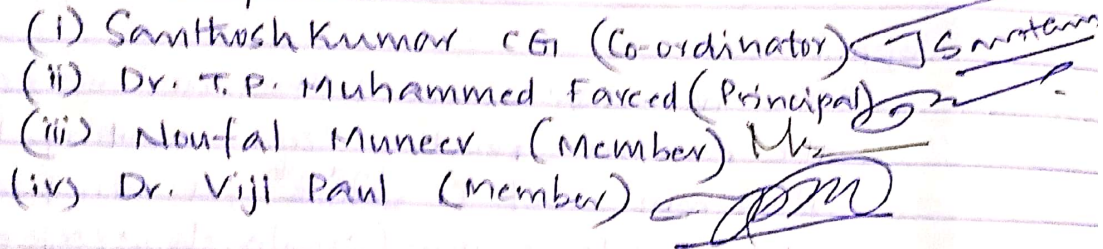 (i) Santhosh Kumar CG (Co-ordinator)
(ii) Dr. T. P. Muhammed Fareed (Principal)
(iii) Noufal Muneer (Member)
(iv) Dr. Viji Paul (Member)